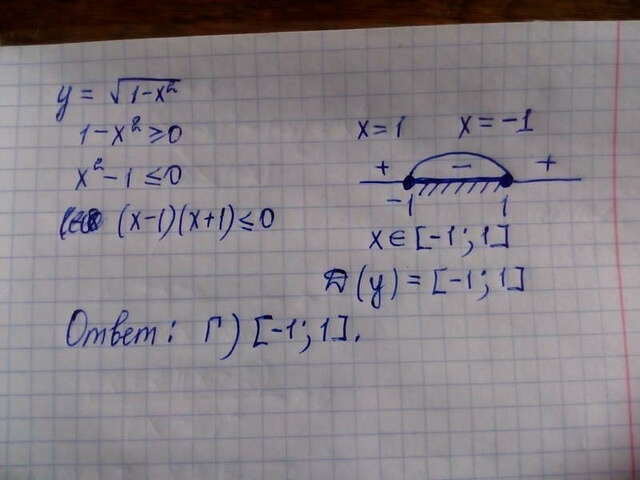 y = √1-x²
1-x² ≥ 0
x² - 1 ≤ 0
(x-1)(x+1) ≤ 0
x = 1 x = -1
+ - +
-1 1
x ∈ [-1; 1]
D(y) = [-1; 1]
Ответ: Г) [-1; 1].